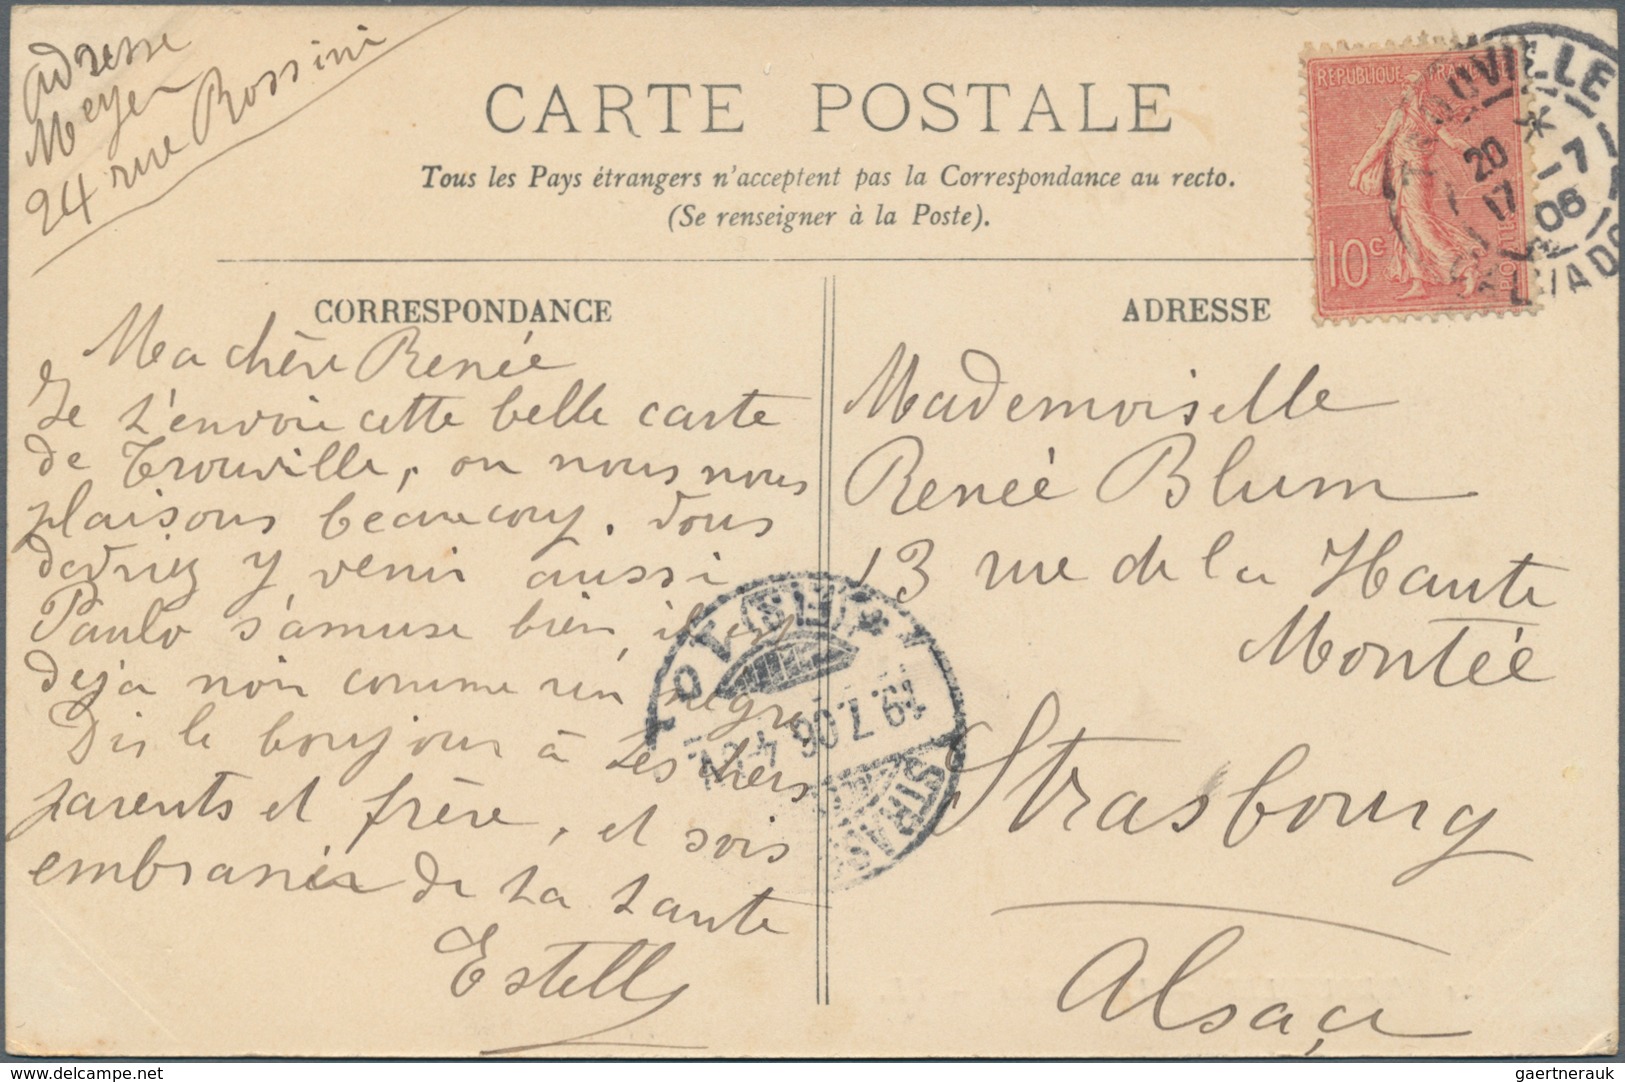 Adresse
Meyer
24 rue Rossini
CARTE POSTALE
Tous les Pays étrangers n'acceptent pas la Correspondance au recto.
(Se renseigner à la Poste).
REPUBLIQUE FRANÇAISE
10c
POSTES
TROUVILLE
20
17 -7
06
CALVADOS
CORRESPONDANCE
Ma chère Renée
Je t'envoie cette belle carte
de Trouville, ou nous nous
plaisons beaucoup. Vous
devriez y venir aussi
Paulo s'amuse bien, il est
deja noir comme un negre
Dis le bonjour à tes chers
parents et frère, et sois
embrassée de ta tante
Estelle
ADRESSE
Mademoiselle
Renée Blum
13 rue de la Haute
Montée
Strasbourg
Alsace
STRASS
19.7.06 4-5N
(ELS)
gaertnerauk @ delcampe.net
gaertnerauk